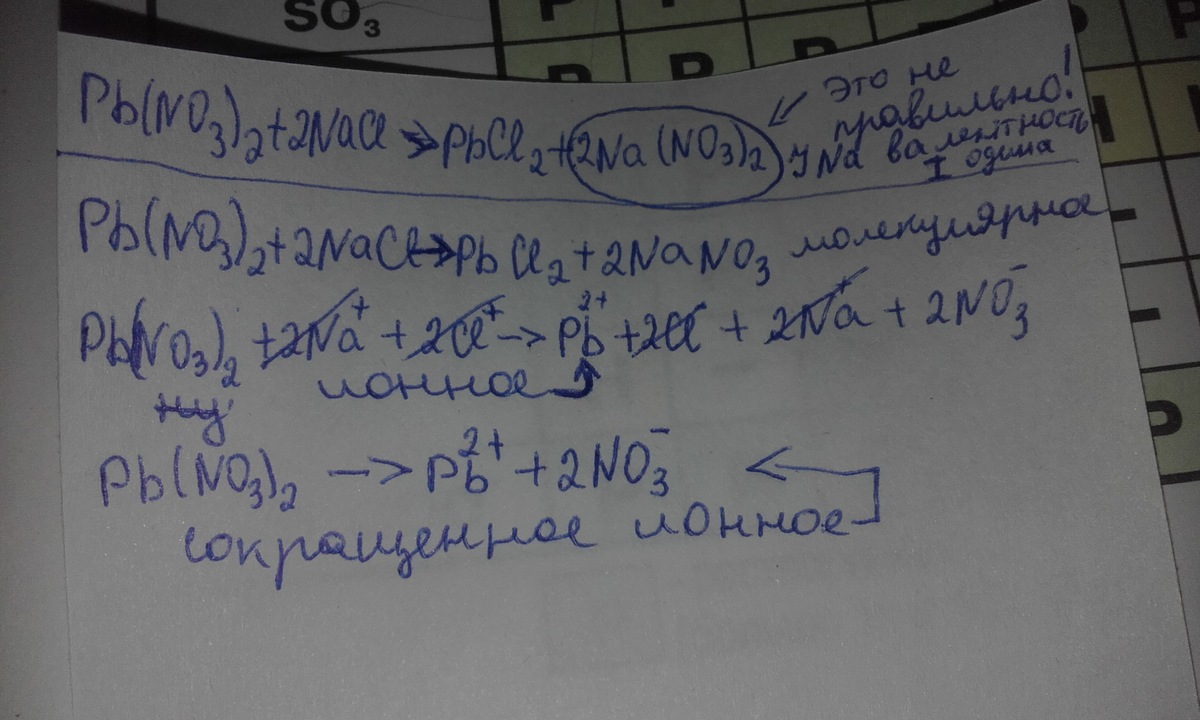 SO₃
P P
P P P P P
Н
Pb(NO₃)₂+2NaCl → PbCl₂+2Na(NO₃)₂ ⇙ Это не
правильно!
у Na валентность
I одина
Pb(NO₃)₂+2NaCl→PbCl₂+2NaNO₃ молекулярное
Pb(NO₃)₂ +2Na⁺ + 2Cl⁺ -> Pb²⁺ +2Cl + 2Na⁺ + 2NO₃⁻
ионное
Pb(NO₃)₂ -> Pb²⁺ + 2NO₃⁻ <
сокращенное ионное
-
-
P